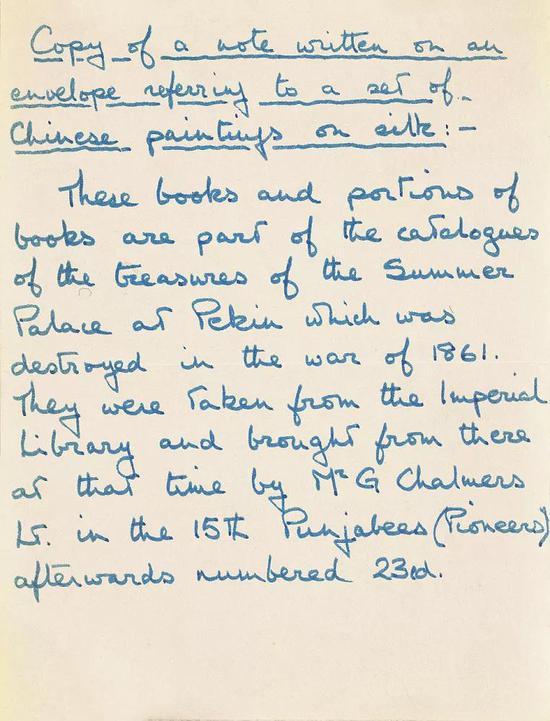 Copy of a note written on an
envelope referring to a set of
Chinese paintings on silk:-
These books and portions of
books are part of the catalogues
of the treasures of the Summer
Palace at Pekin which was
destroyed in the war of 1861.
They were taken from the Imperial
Library and brought from there
at that time by Mr G Chalmers
Lt. in the 15th Punjabees (Pioneers)
afterwards numbered 23rd.